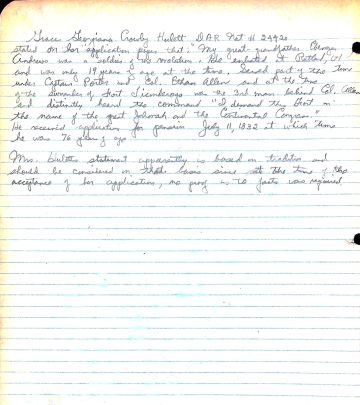 Grace Georgiana Crosby Hulett D.A.R. Nat # 29420
stated on her application paper that: "My great grandfather
Andrews was a soldier of the revolution. He enlisted at Rutland, Vt
and was only 19 years of age at the time. Served part of the time
under Captain Porter and Col. Ethan Allen and at the time
of the surrender of Fort Ticonderoga was the 3rd man behind Col. Allen
and distinctly heard the command "I demand this fort in
the name of the great Jehovah and the Continental Congress."
He received application for pension July 11, 1832 at which time
he was 76 years of age
Mrs. Hulett's statement apparently is based on tradition and
should be considered on that basis since at the time of the
acceptance of her application, no proof as to facts was required.